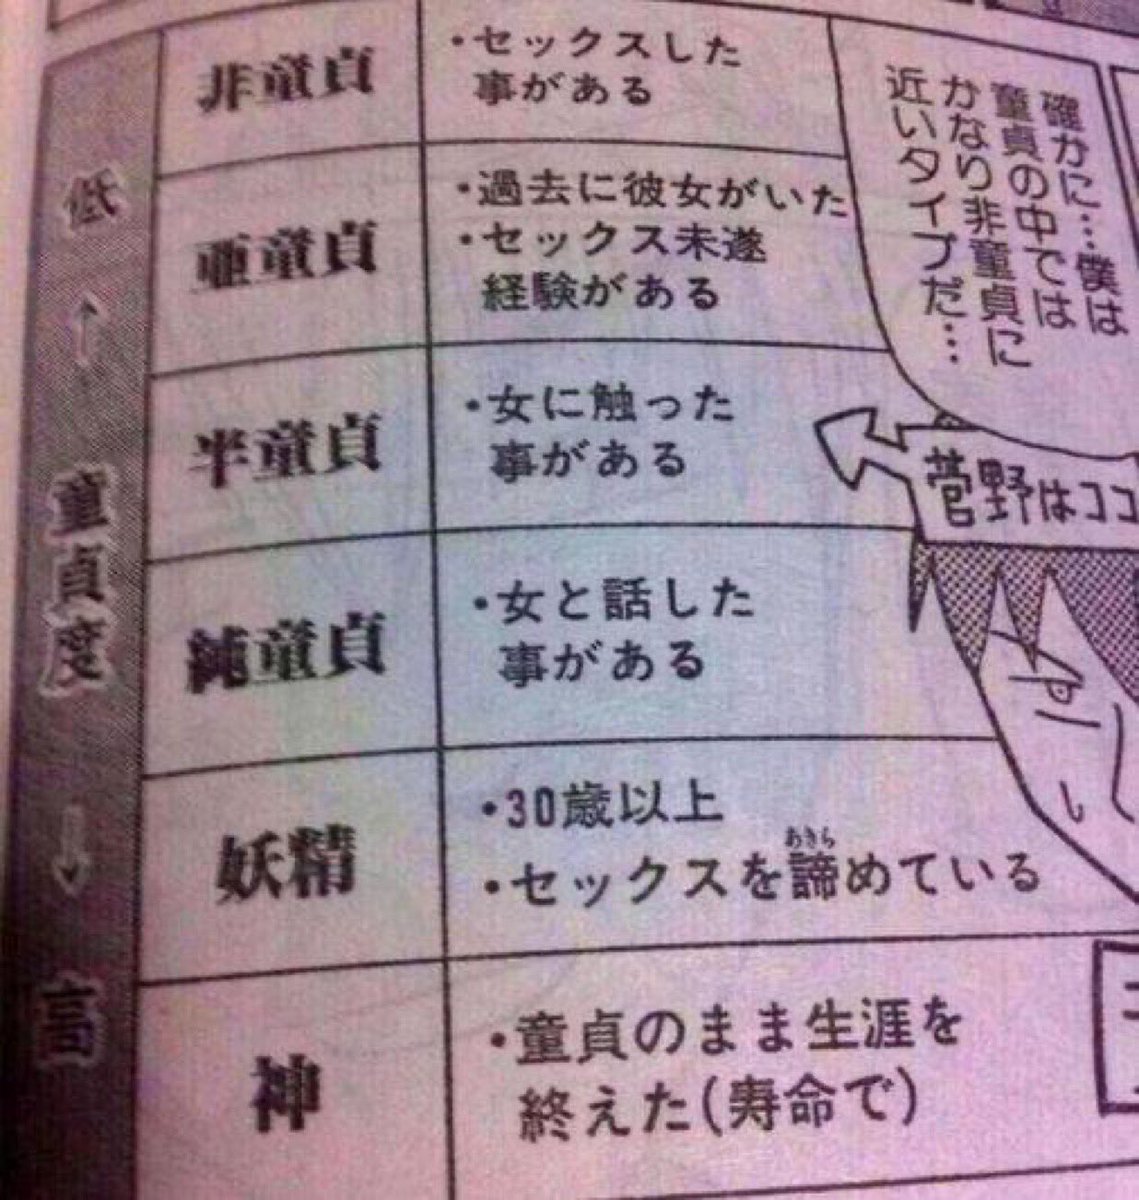 確かに…僕は
童貞の中では
かなり非童貞に
近いタイプだ…
菅野はココ
低
↑
童貞度
↓
高
非童貞
・セックスした
事がある
亜童貞
・過去に彼女がいた
・セックス未遂
経験がある
半童貞
・女に触った
事がある
純童貞
・女と話した
事がある
妖精
・30歳以上
・セックスを諦めている
あきら
神
・童貞のまま生涯を
終えた(寿命で)